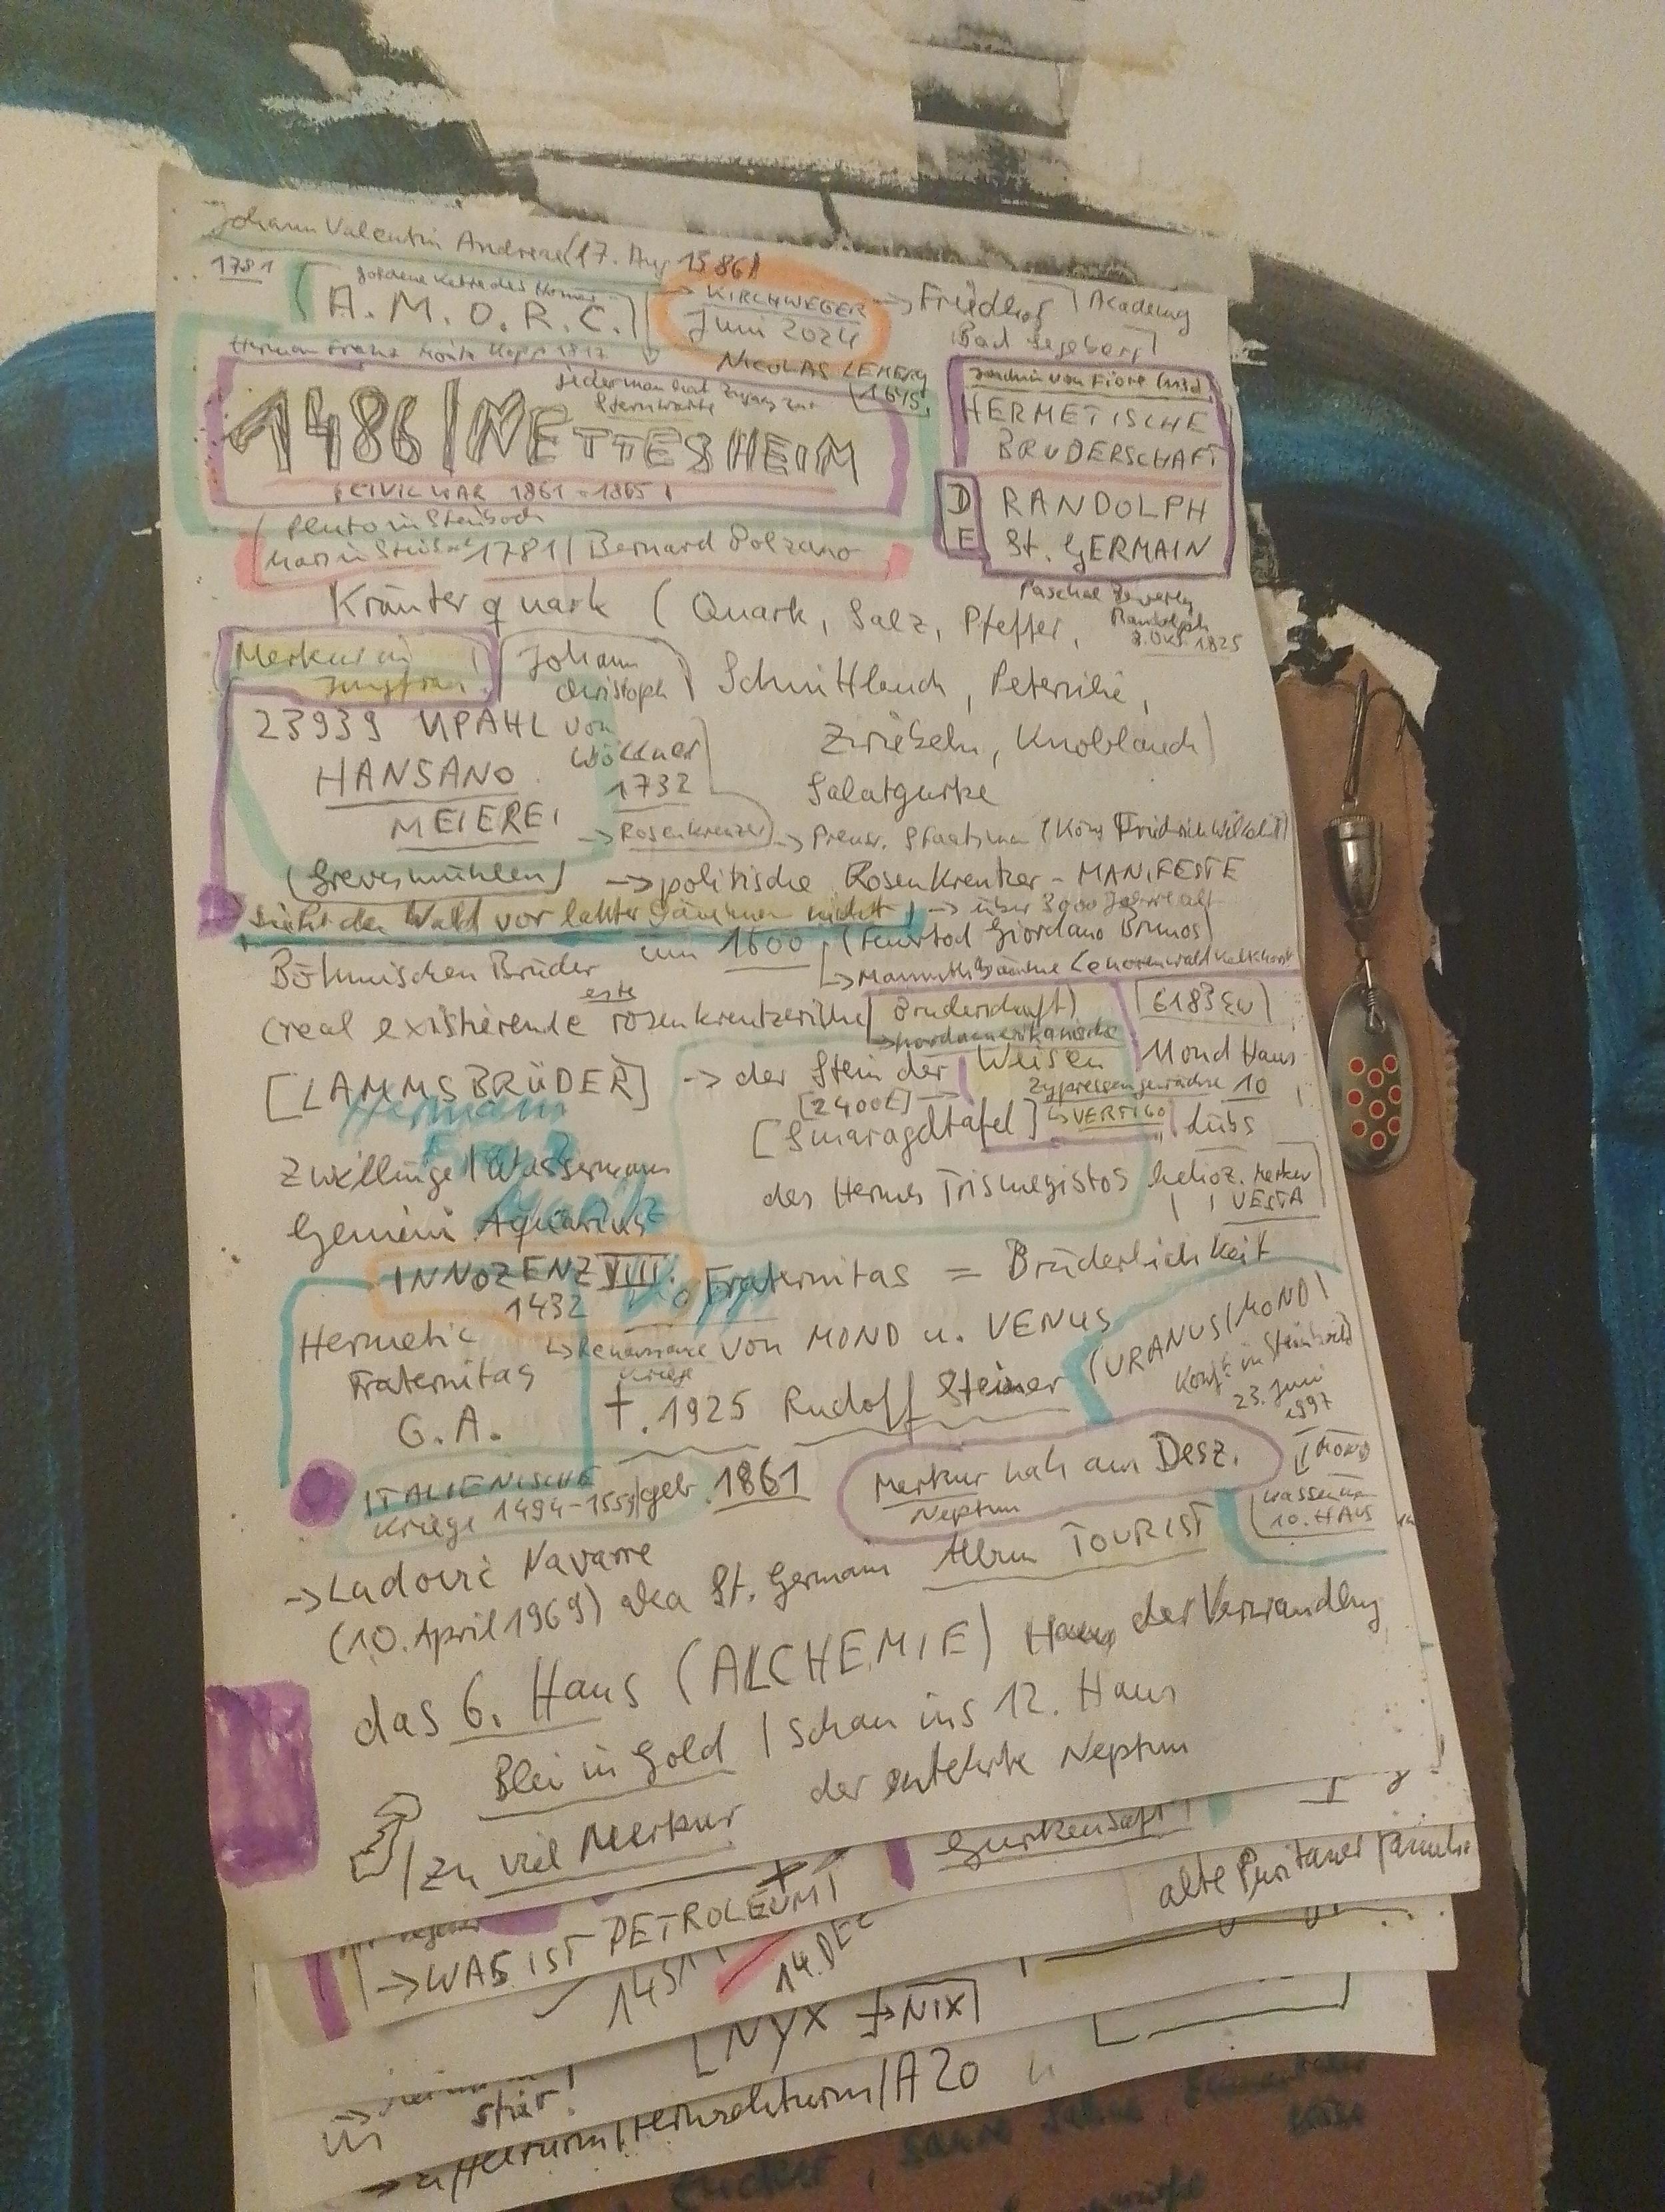 Johann Valentin Andreae (17. Aug 1586)
1781
goldene Kette des Homer
A.M.O.R.C.
KIRCHWEGER
Juni 2024
Friedhof
Bad Segeberg
Academy
Hermann Franz Moritz Kopp 1817
NICOLAS LEMERY
1645
jedermann hat Zugang zur
Sternwarte
1486/NETTESHEIM
CIVIL WAR 1861-1865
Joachim von Fiore
HERMETISCHE
BRUDERSCHAFT
DE
RANDOLPH
St. GERMAIN
Pluto in Steinbock
1781 / Bernard Bolzano
Paschal Beverly
Randolph
8. Okt. 1825
Kräuterquark (Quark, Salz, Pfeffer,
Schnittlauch, Petersilie,
Zwiebeln, Knoblauch)
Salatgurke
Merkur in
Jungfrau
Johann
Christoph
von
Wöllner
1732
23939 UPAHL
HANSANO
MEIEREI
(Grevesmühlen)
-> Rosenkreuzer -> Preuss. Staatsmann (König Friedrich Wilhelm II)
-> politische Rosenkreutzer - MANIFESTE
sieht den Wald vor lauter Bäumen nicht! -> über 3000 Jahre alt
Böhmischen Brüder um 1600 (Feuertod Giordano Brunos)
-> Mammutbäume
(real existierende erste rosenkreutzerische Bruderschaft)
-> nordamerikanische
[6183 EW]
[LAMMSBRÜDER] -> der Stein der Weisen
Mond Haus
10
Zypressengewächse
[2400 €] ->
VERTIGO
[Smaragdtafel]
Lübs
des Hermes Trismegistos
helioz. Merker
VESTA
Hermann
Franz
Moritz
Kopp
Zwillinge / Wassermann
Gemini Aquarius
INNOZENZ VIII.
1432
Fraternitas = Brüderlichkeit
Hermetic
Fraternitas
G.A.
-> Renaissance
Kriege
von MOND u. VENUS
(URANUS / MOND)
Konj. in Steinbock
23. Juni
1997
†. 1925 Rudolf Steiner
geb. 1861
ITALIENISCHE
Kriege 1494-1559
Merkur nah am Desz.
Neptun
(MOND
Wassermann
10. HAUS
-> Ludovic Navarre
(10. April 1969) aka St. Germain Album TOURIST
das 6. Haus (ALCHEMIE) Haus der Verwandlung
Blei in Gold / schau ins 12. Haus
/ zu viel Merkur der entehrte Neptun
Gurkensaft
-> WAS IST PETROLEUM
alte Puritaner Familie
14. DEC
[NYX -> NIX]
stier!
/A20
Zucker, saure Sahne,